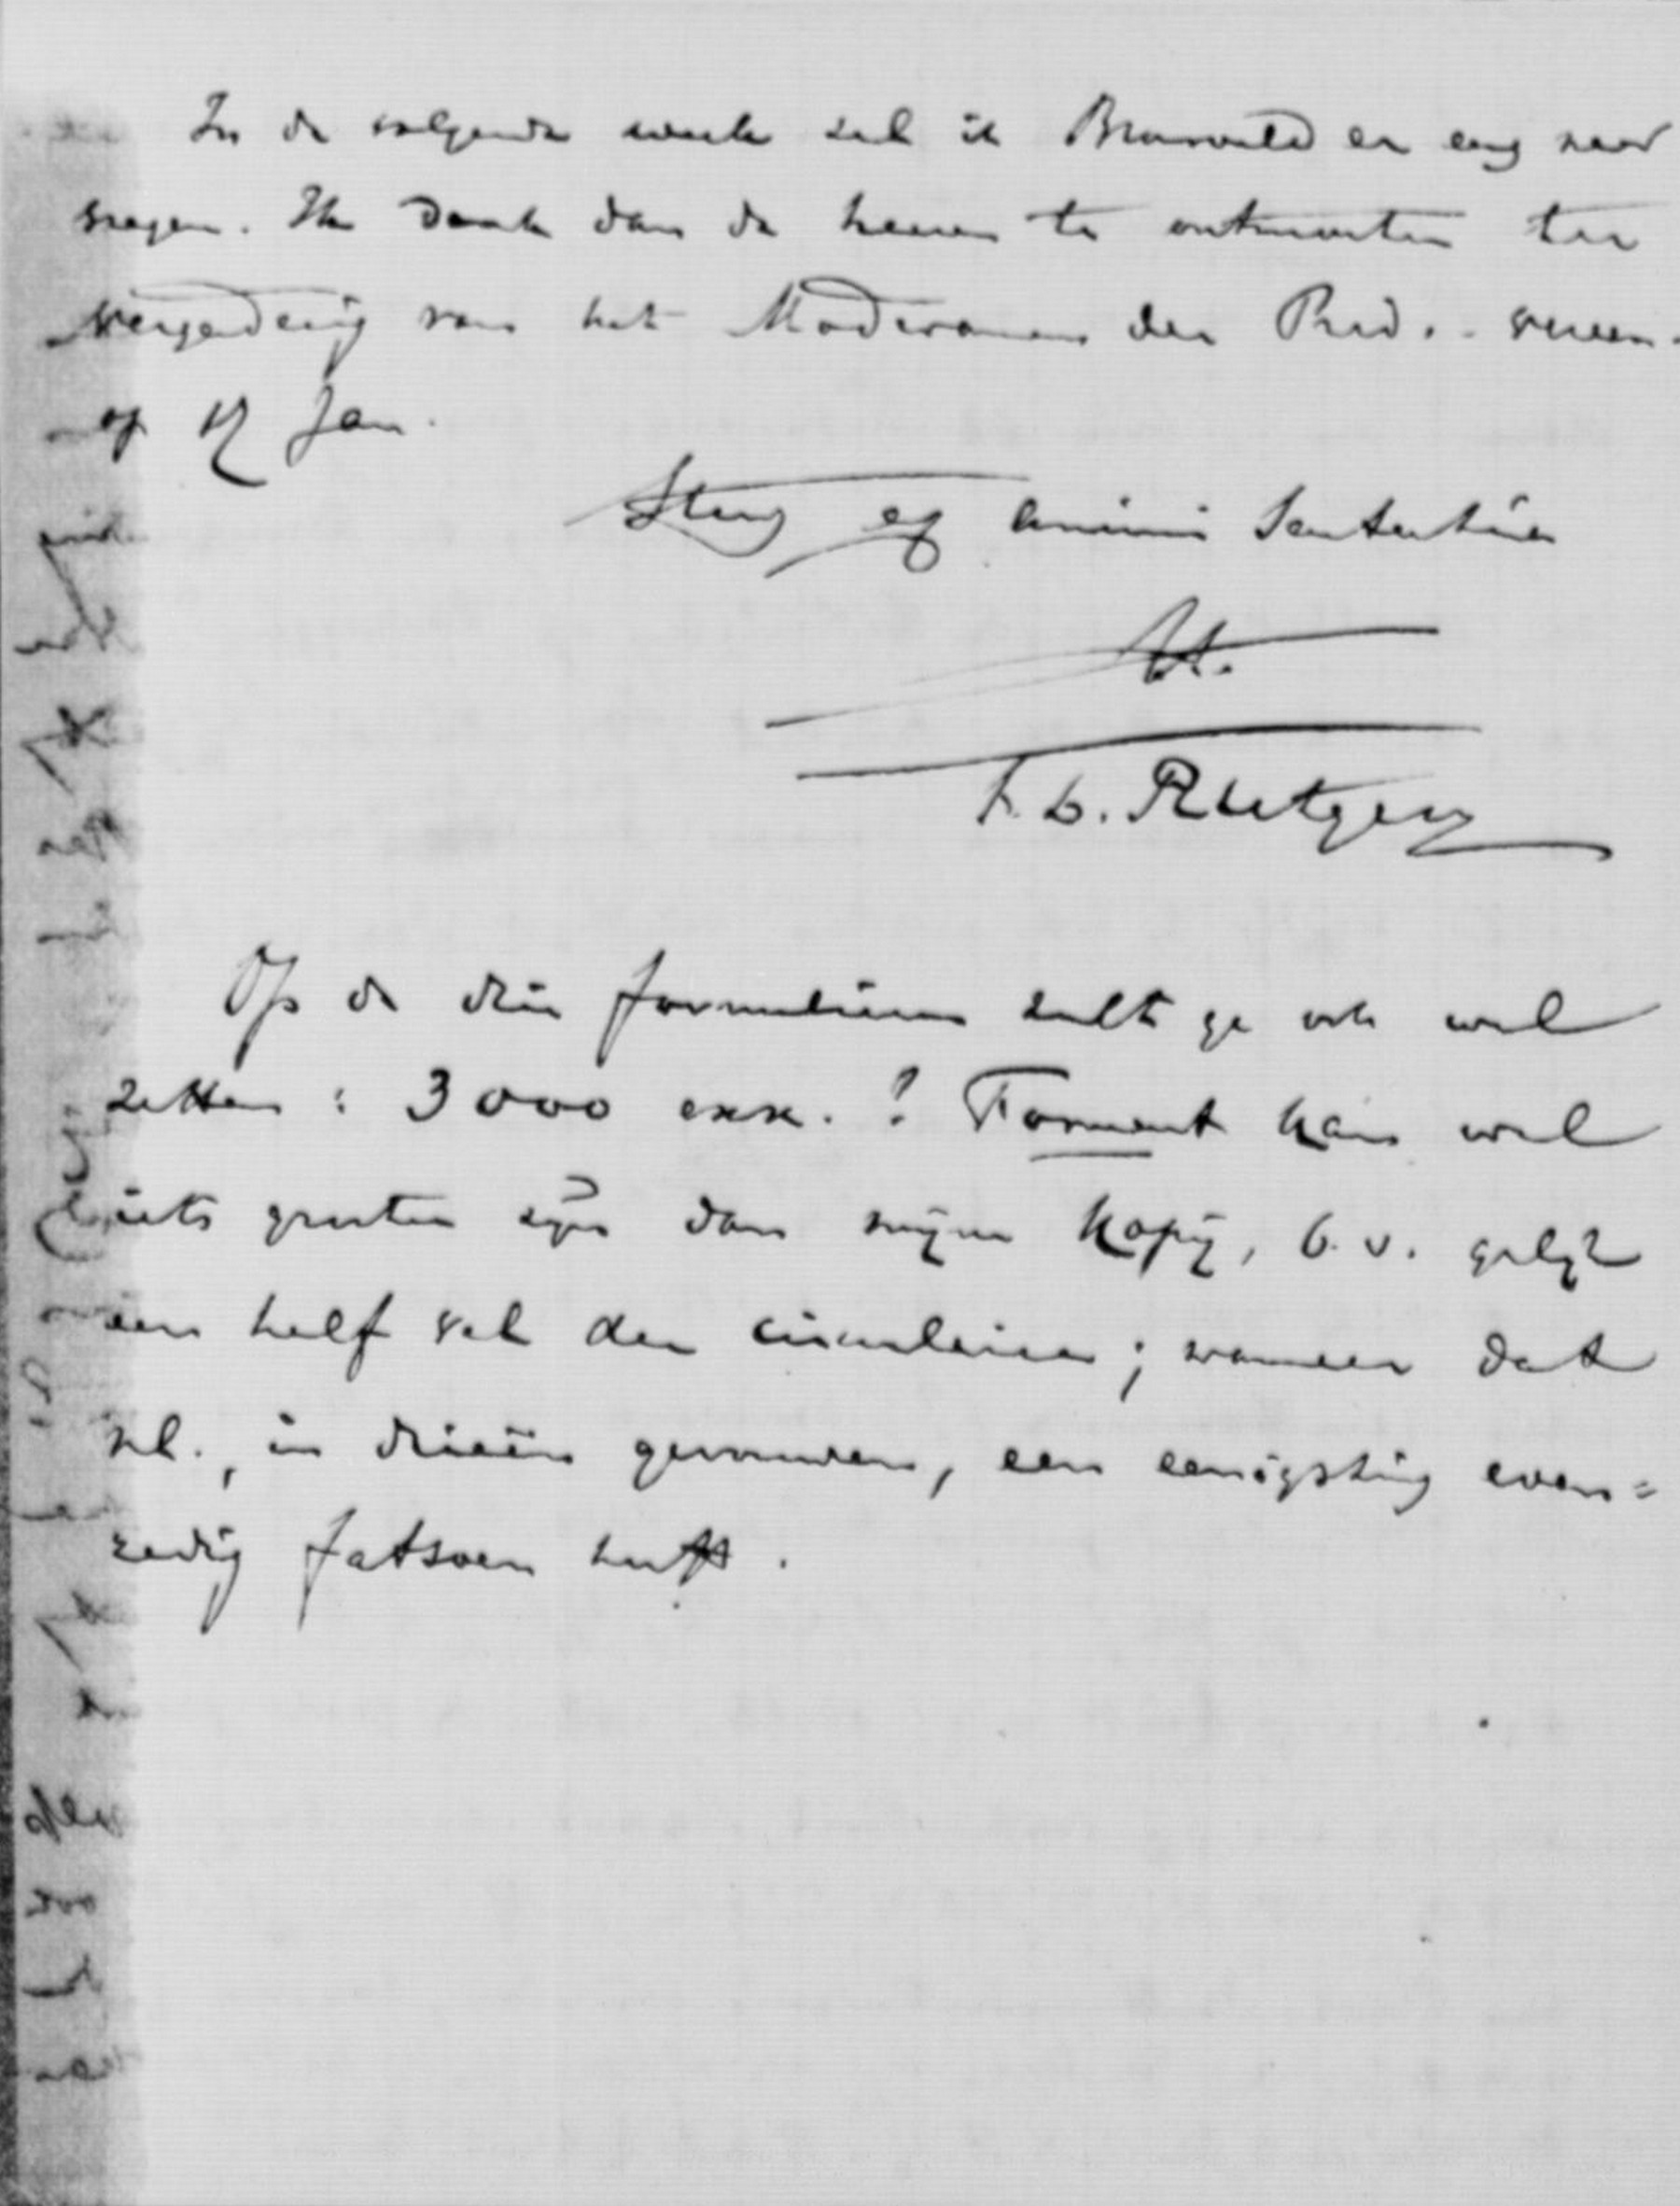 In de volgende week zal ik Bronsveld er eens naar
vragen. Ik denk dan de heeren te ontmoeten ter
vergadering van het Moderamen der Pred.-vereen.
op 17 Jan.
Steeds ex animi sententia
tt.
F. L. Rutgers
Op de drie formulieren zult ge ook wel
zetten: 3000 exx.? Formaat kan wel
iets grooter zijn dan mijne kopij, b.v. gelijk
een half vel der circulaire; wanneer dat
nl., in drieën gevouwen, een eenigszins even=
redig fatsoen heeft.